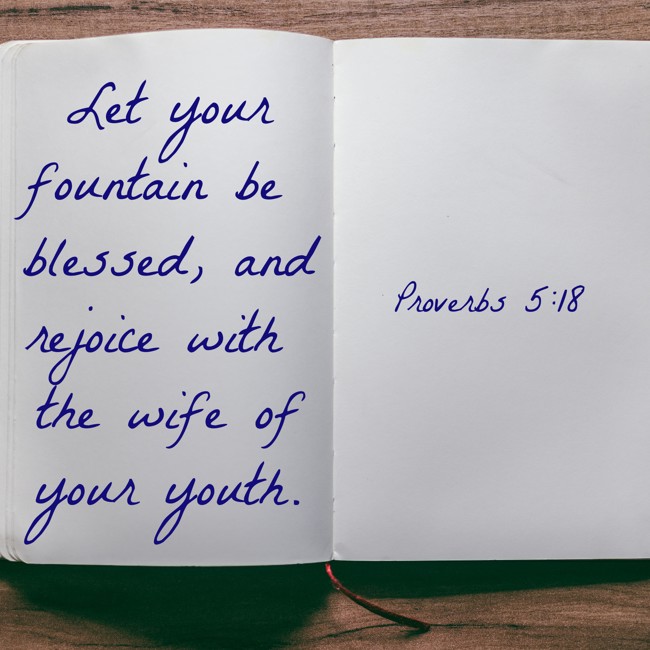 Let your
fountain be
blessed, and
rejoice with
the wife of
your youth.
Proverbs 5:18